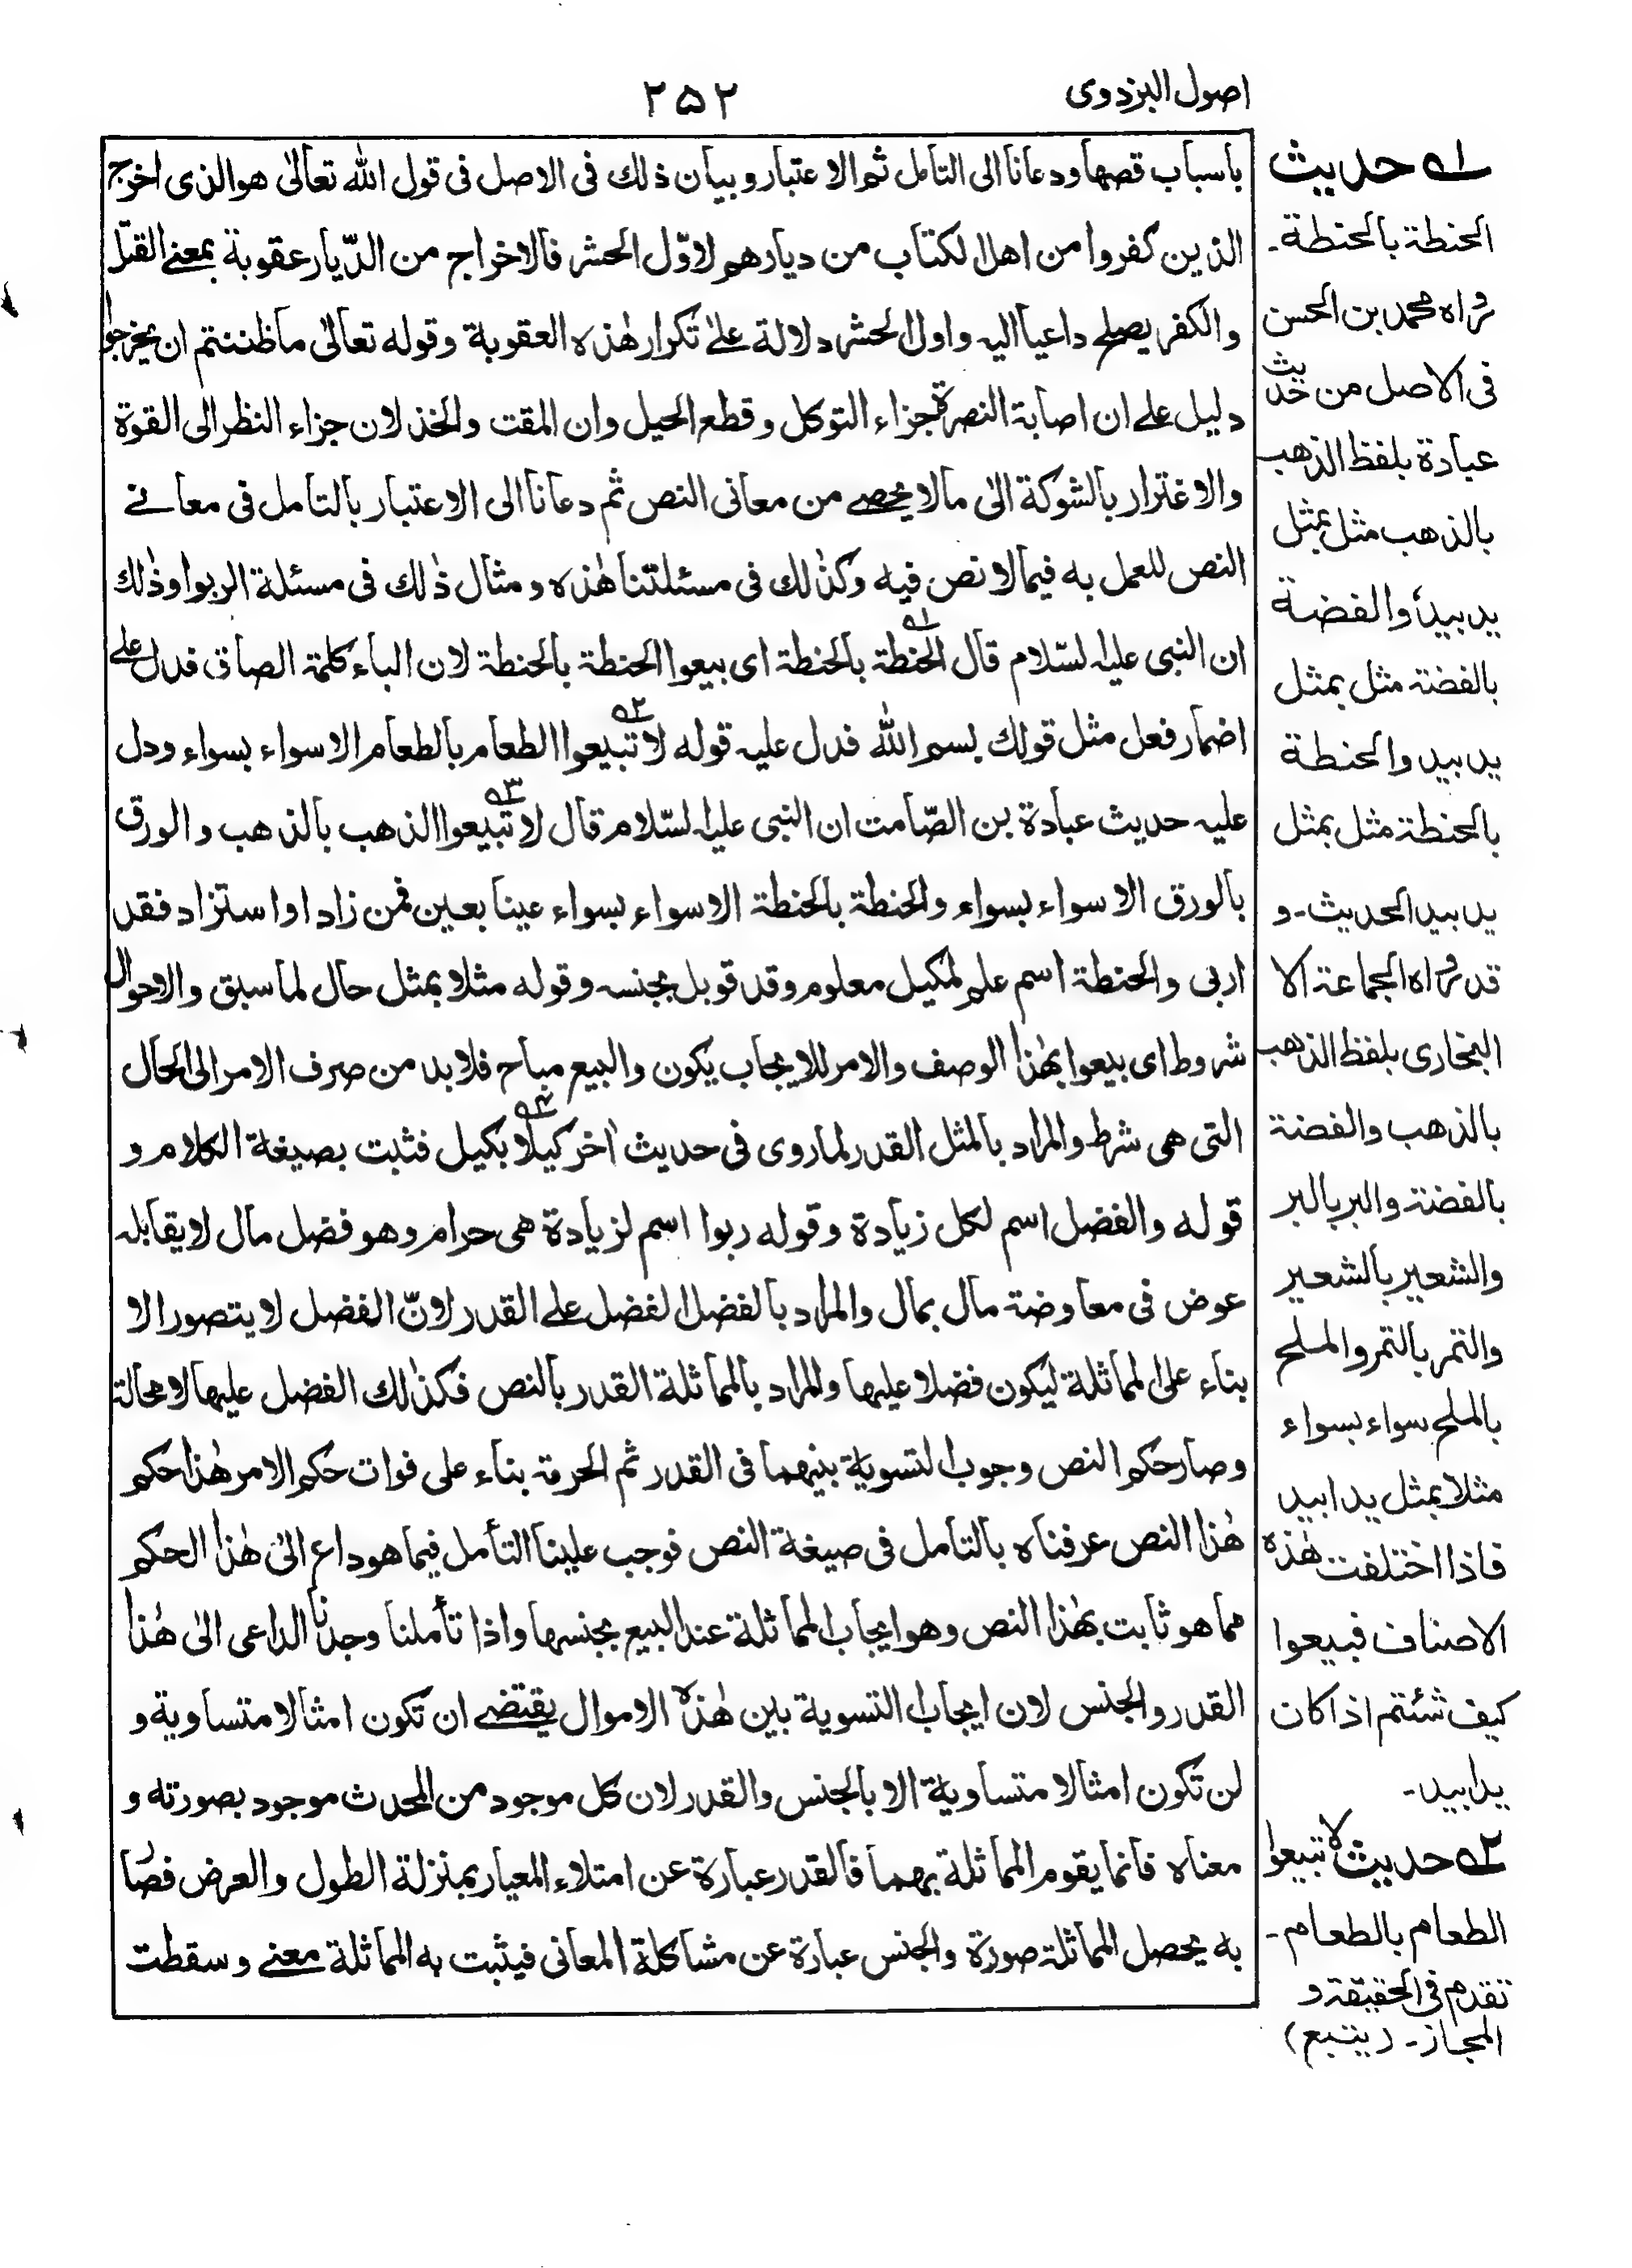 اصول البزدوی
۲۵۲
باسباب قصها ودعانا الی التامل ثم الاعتبار وبیان ذلك فی الاصل فی قول الله تعالیٰ هو الذی اخرج
الذین کفروا من اهل الکتاب من دیارهم لاوّل الحشر فالاخراج من الدّیار عقوبة بمعنے القتل
والکفر یصلح داعیا الیه واول الحشر دلالة علےٰ تکرار هٰذه العقوبة وقوله تعالیٰ ماظننتم ان یخرجوا
دلیل علے ان اصابة النصرة جزاء التوکل وقطع الحیل وان المقت والخذلان جزاء النظر الی القوة
والاغترار بالشوکة الیٰ مالا یحصے من معانی النص ثم دعانا الی الاعتبار بالتامل فی معانے
النص للعمل به فیما لا نص فیه وکذٰلك فی مسئلتنا هٰذه و مثال ذٰلك فی مسئلة الربوا وذٰلك
ان النبی علیه السّلام قال الحنطة ۱ه بالحنطة ای بیعوا الحنطة بالحنطة لان الباء کلمة الصاق فدل علے
اضمار فعل مثل قولك بسم الله فدل علیه قوله لا تبیعوا ۲ه الطعام بالطعام الا سواء بسواء ودل
علیه حدیث عبادة بن الصّامت ان النبی علیه السّلام قال لا تبیعوا ۳ه الذهب بالذهب والورق
بالورق الا سواء بسواء والحنطة بالحنطة الا سواء بسواء عینا بعین فمن زاد او استزاد فقد
اربی والحنطة اسم علم لمکیل معلوم وقد قوبل بجنسه وقوله مثلا بمثل حال لما سبق والاحوال
شروط ای بیعوا بهٰذا الوصف والامر للایجاب یکون والبیع مباح فلا بد من صرف الامر الی الحال
التی هی شرط والمراد بالمثل القدر لما روی فی حدیث اٰخر کیلا ۴ه بکیل فثبت بصیغة الکلام و
قوله والفضل اسم لکل زیادة وقوله ربوا اسم لزیادة هی حرام وهو فضل مال لا یقابله
عوض فی معاوضة مال بمال والمراد بالفضل الفضل علے القدر لانّ الفضل لا یتصور الا
بناء علی المماثلة لیکون فضلا علیها والمراد بالمماثلة القدر بالنص فکذٰلك الفضل علیها لا محالة
وصار حکم النص وجوب التسویة بینهما فی القدر ثم الحرمة بناء علی فوات حکم الامر هٰذا حکم
هٰذا النص عرفناه بالتامل فی صیغة النص فوجب علینا التأمل فیما هو داع الیٰ هٰذا الحکم
مما هو ثابت بهٰذا النص وهو ایجاب المماثلة عند البیع بجنسها واذا تأملنا وجدنا الداعی الیٰ هٰذا
القدر والجنس لان ایجاب التسویة بین هٰذه الاموال یقتضے ان تکون امثالا متساویة و
لن تکون امثالا متساویة الا بالجنس والقدر لان کل موجود من المحدث موجود بصورته و
معناه فانما یقوم المماثلة بهما فالقدر عبارة عن امتلاء المعیار بمنزلة الطول والعرض فصار
به یحصل المماثلة صورة والجنس عبارة عن مشاکلة المعانی فیثبت به المماثلة معنے وسقطت
۱ه حدیث
الحنطة بالحنطة۔
رواه محمد بن الحسن
فی الاصل من حدیث
عبادة بلفظ الذهب
بالذهب مثل بمثل
ید بید والفضة
بالفضة مثل بمثل
ید بید والحنطة
بالحنطة مثل بمثل
ید بید الحدیث۔ و
قد رواه الجماعة الا
البخاری بلفظ الذهب
بالذهب والفضة
بالفضة والبر بالبر
والشعیر بالشعیر
والتمر بالتمر والملح
بالملح سواء بسواء
مثلا بمثل یدا بید
فاذا اختلفت هٰذه
الاصناف فبیعوا
کیف شئتم اذا کان
یدا بید۔
۲ه حدیث لا تبیعوا
الطعام بالطعام۔
تقدم فی الحقیقة و
المجاز۔ (یتبع)